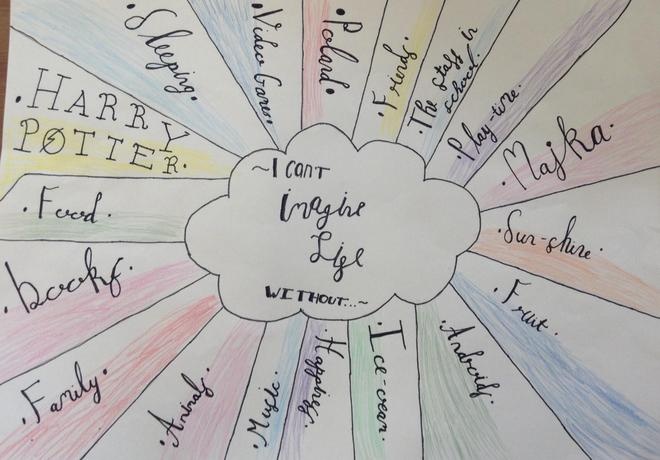 ~I CAN'T
Imagine
Life
WITHOUT...~
.Sleeping.
.Video Games.
.Poland.
.Friends.
.The staff in
school.
.Play-time.
.Majka.
.Sun-shine.
.Fruit.
.Androids.
.Ice-cream.
.Happiness.
.Music.
.Animals.
.Family.
.books.
.Food.
.HARRY
POTTER.